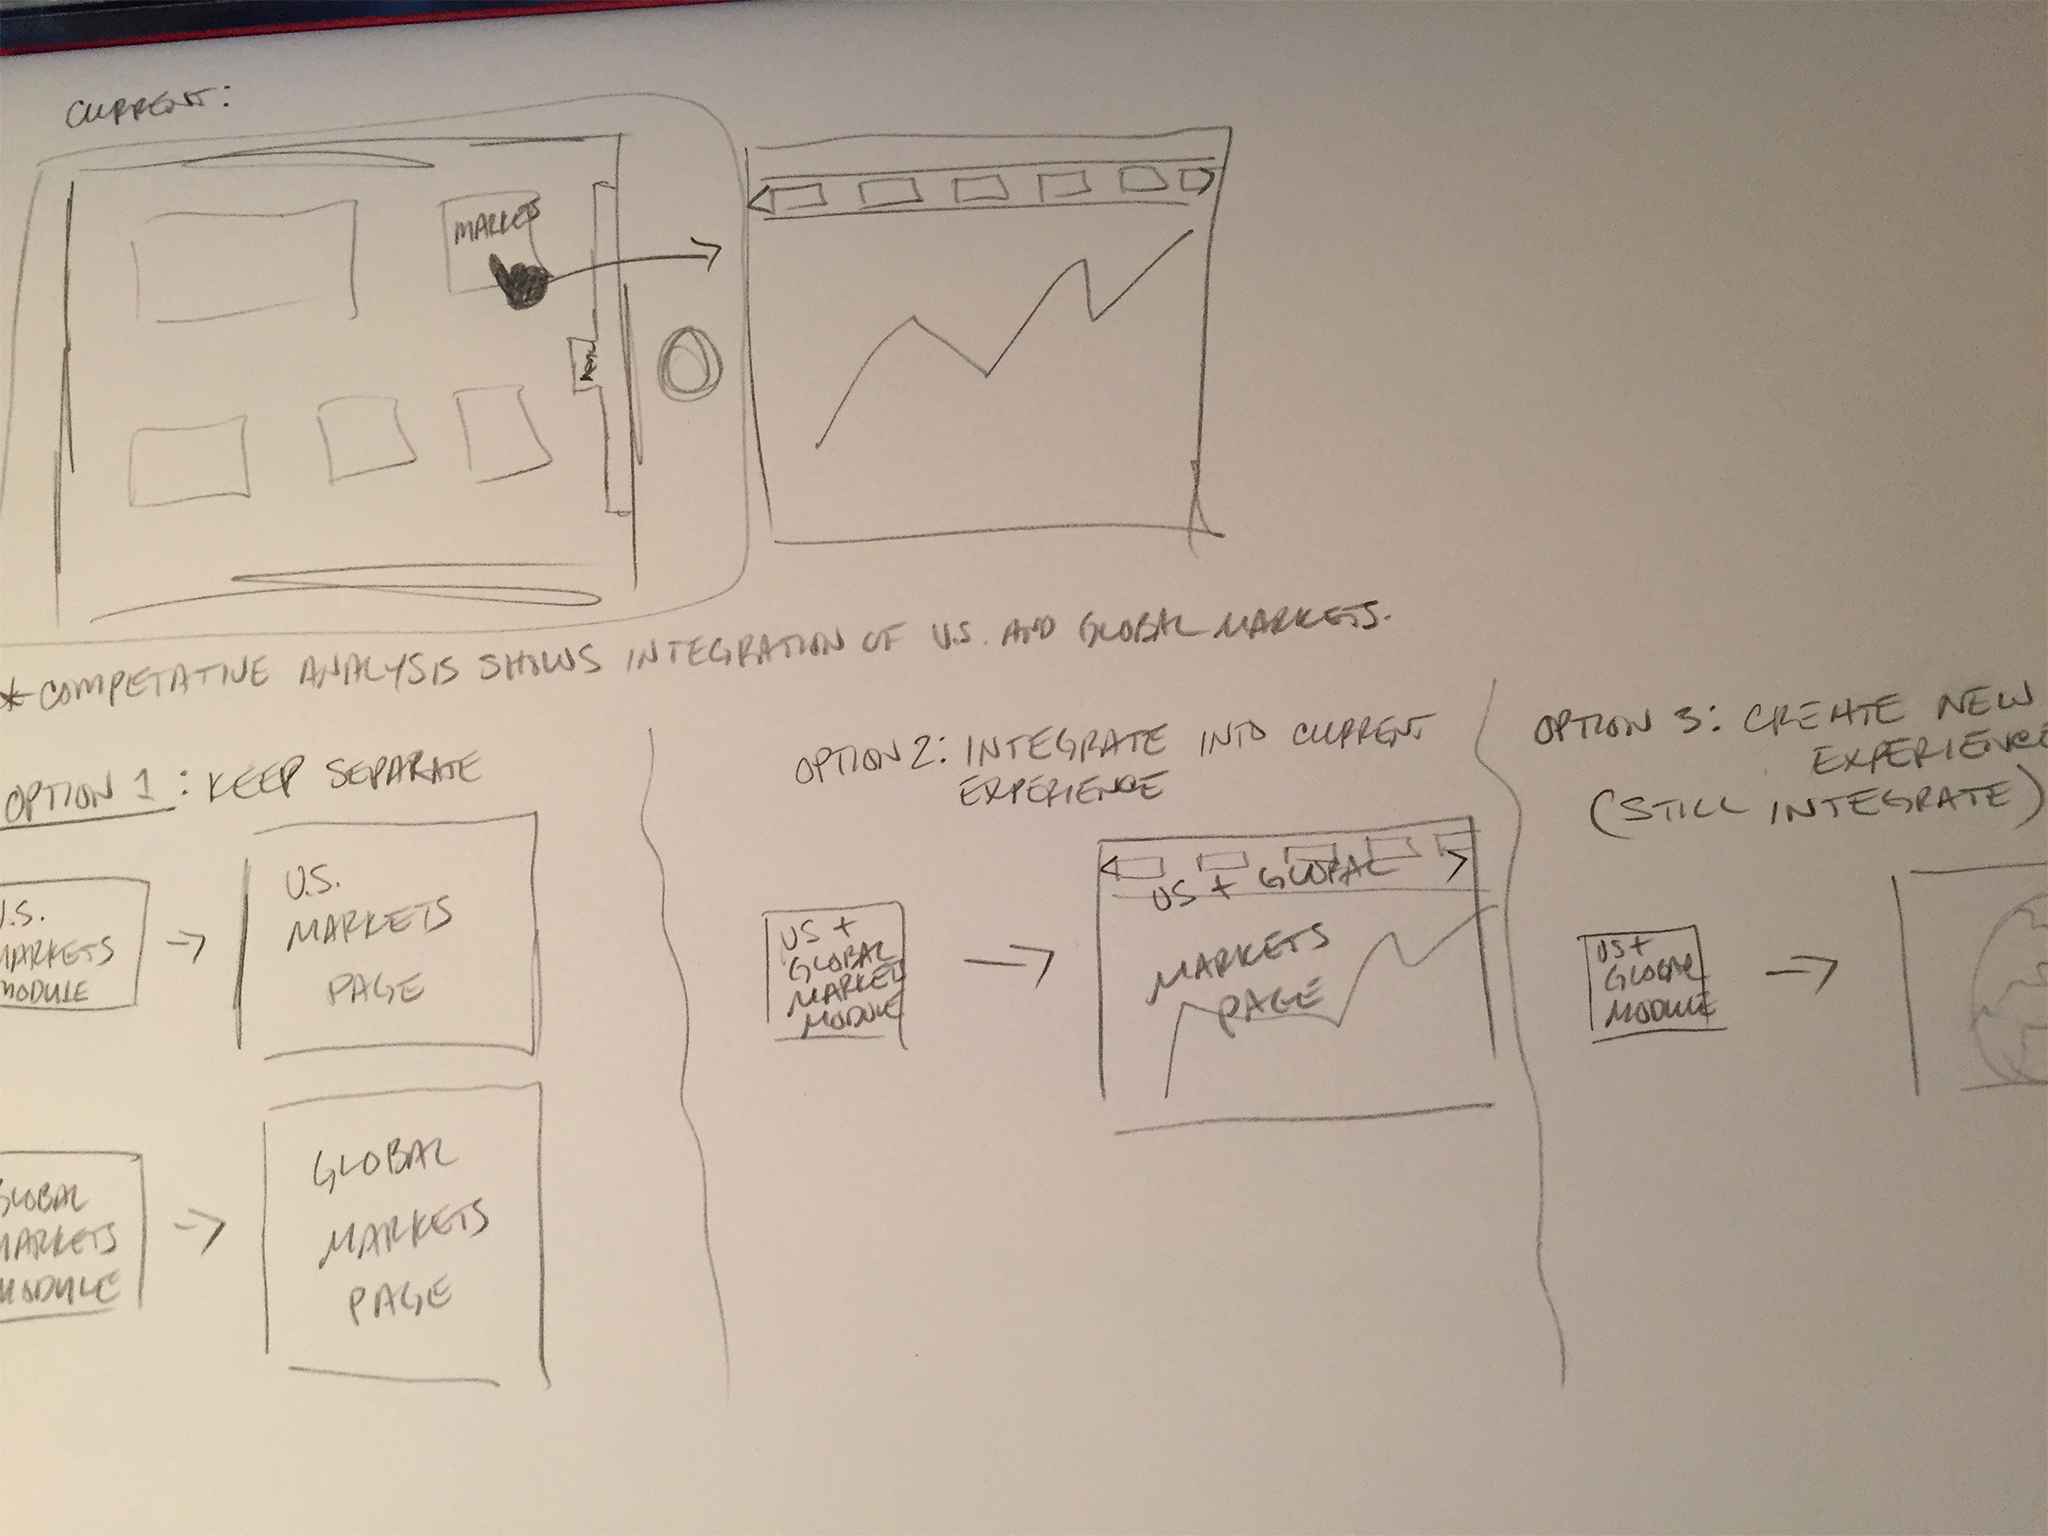 CURRENT:
MARKETS
MENU
*COMPETATIVE ANALYSIS SHOWS INTEGRATION OF U.S. AND GLOBAL MARKETS.
OPTION 1: KEEP SEPARATE
U.S.
MARKETS
MODULE
U.S.
MARKETS
PAGE
GLOBAL
MARKETS
MODULE
GLOBAL
MARKETS
PAGE
OPTION 2: INTEGRATE INTO CURRENT
EXPERIENCE
US +
GLOBAL
MARKET
MODULE
US + GLOBAL
MARKETS
PAGE
OPTION 3: CREATE NEW
EXPERIENCE
(STILL INTEGRATE)
US +
GLOBAL
MODULE